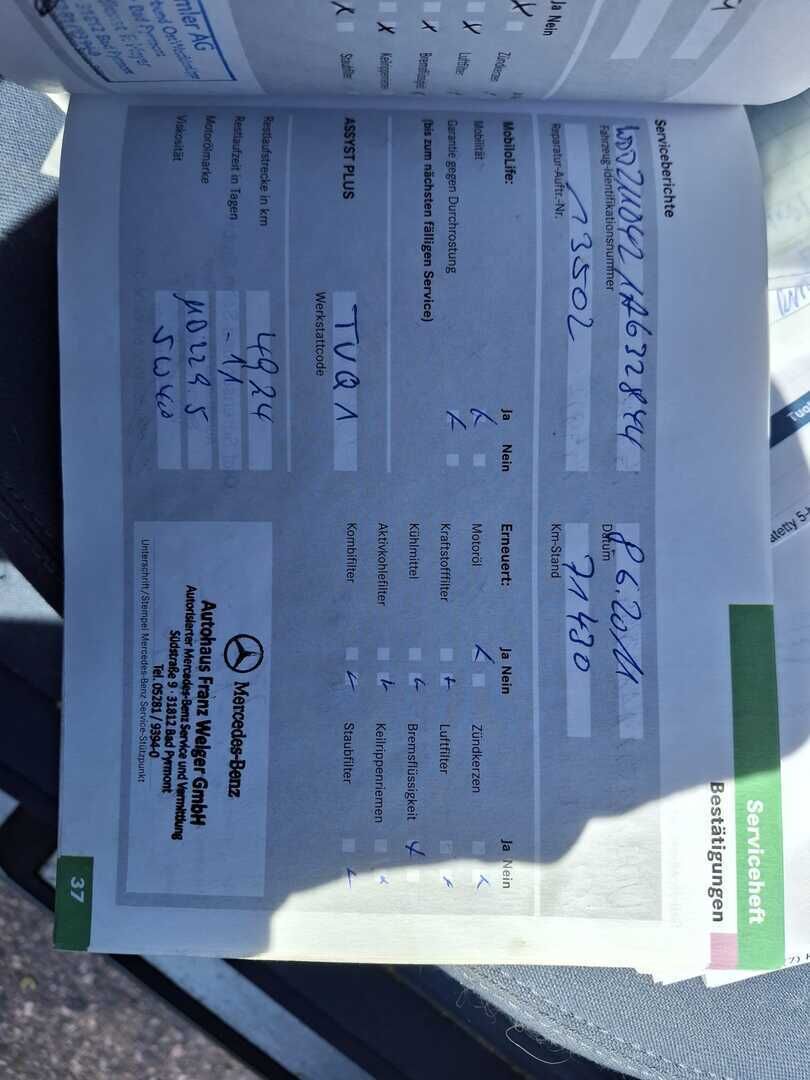 Serviceheft
Bestätigungen
Serviceberichte
WDD2110421A632844
Fahrzeug-Identifikationsnummer
8.6.2011
Datum
13502
Reparatur-Auftr.-Nr.
71430
Km-Stand
MobiloLife:
Ja Nein
Mobilität
Garantie gegen Durchrostung
(bis zum nächsten fälligen Service)
Erneuert:
Ja Nein
Ja Nein
Motoröl
Zündkerzen
Kraftstofffilter
Luftfilter
Kühlmittel
Bremsflüssigkeit
Aktivkohlefilter
Keilrippenriemen
Kombifilter
Staubfilter
ASSYST PLUS
TUQ1
Werkstattcode
Restlaufstrecke in km
4924
Restlaufzeit in Tagen
-11
Motorölmarke
MB 229.5
Viskosität
5W40
Mercedes-Benz
Autohaus Franz Welger GmbH
Autorisierter Mercedes-Benz Service und Vermittlung
Südstraße 9 · 31812 Bad Pyrmont
Tel. 05281 / 9394-0
Unterschrift/Stempel Mercedes-Benz Service-Stützpunkt
37
Ja Nein
Zündkerzen
Luftfilter
Staubfilter
31812 Bad Pyrmont